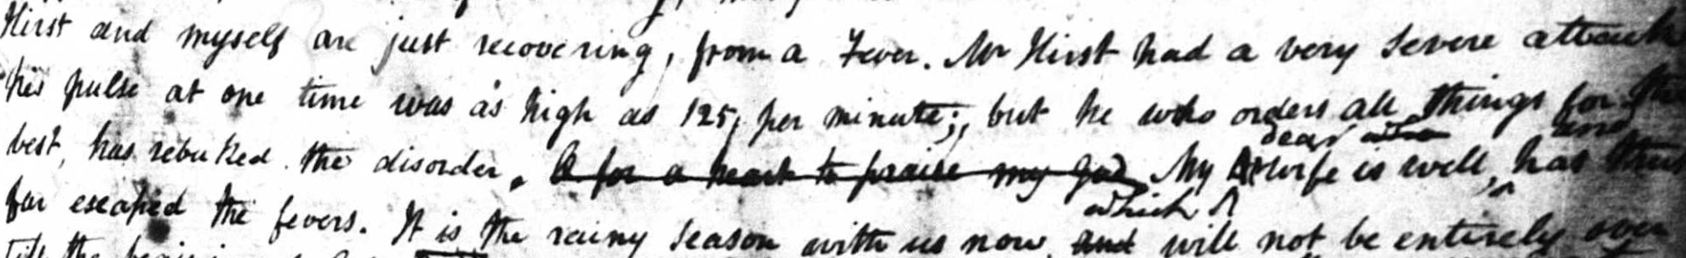 Hirst and myself are just recovering, from a Fever. Mr Hirst had a very severe attack
his pulse at one time was as high as 125, per minute; but he who orders all things for the
dear and
best, has rebuked the disorder. O for a heart to praise my God My wife is well, has thus
which
far escaped the fevers. It is the rainy season with us now, and will not be entirely over
till the